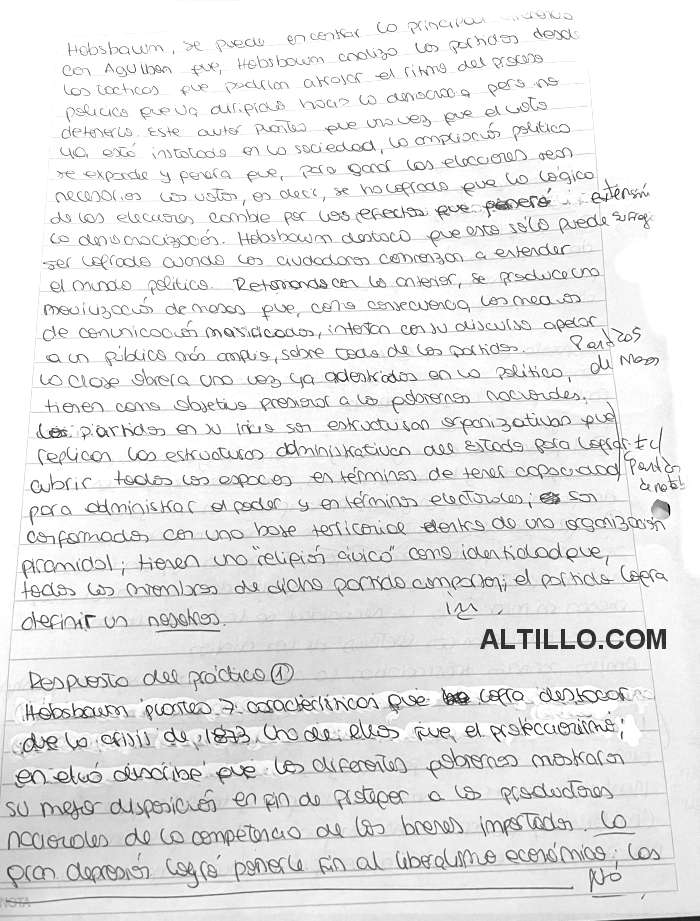 Hobsbawm, se puede encontrar la principal
con Agulhon que, Hobsbawm analiza los partidos desde
las tácticas que podrían atrasar el ritmo del proceso
político que va dirigido hacia la democracia pero no
detenerlo. Este autor plantea que una vez que el voto
ya está instalado en la sociedad, la ampliación política
se expande y genera que, para ganar las elecciones sean
necesarios los votos, es decir, se ha logrado que la lógica
de las elecciones cambie por los efectos que generó extensión
la democratización. Hobsbawm destaca que esto sólo puede sufrag
ser logrado cuando los ciudadanos comienzan a extender
el mundo político. Retomando con lo anterior, se produce una
movilización de masas que, como consecuencia, los medios
de comunicación masificados, intentan con su discurso apelar
a un público más amplio, sobre todo de los partidos. Partidos
La clase obrera una vez ya adentrados en la política, de masas
tienen como objetivo presionar a los gobiernos nacionales.
Los partidos en su inicio son estructuras organizativas que
replican las estructuras administrativas del Estado para lograr
cubrir todos los espacios en términos de tener capacidad Partido
para administrar el poder y en términos electorales; son de notab
conformados con una base territorial dentro de una organización
piramidal; tienen una "religión cívica" como identidad que,
todos los miembros de dicho partido comparten; el partido logra
definir un nosotros.
ALTILLO.COM
Respuesta del práctico ①
Hobsbawm plantea 7 características que logra destacar
de la crisis de 1873. Una de ellas fue, el proteccionismo;
en él describe que los diferentes gobiernos mostraron
su mejor disposición en fin de proteger a los productores
nacionales de la competencia de los bienes importados. La
gran depresión logró ponerle fin al liberalismo económico; las
No